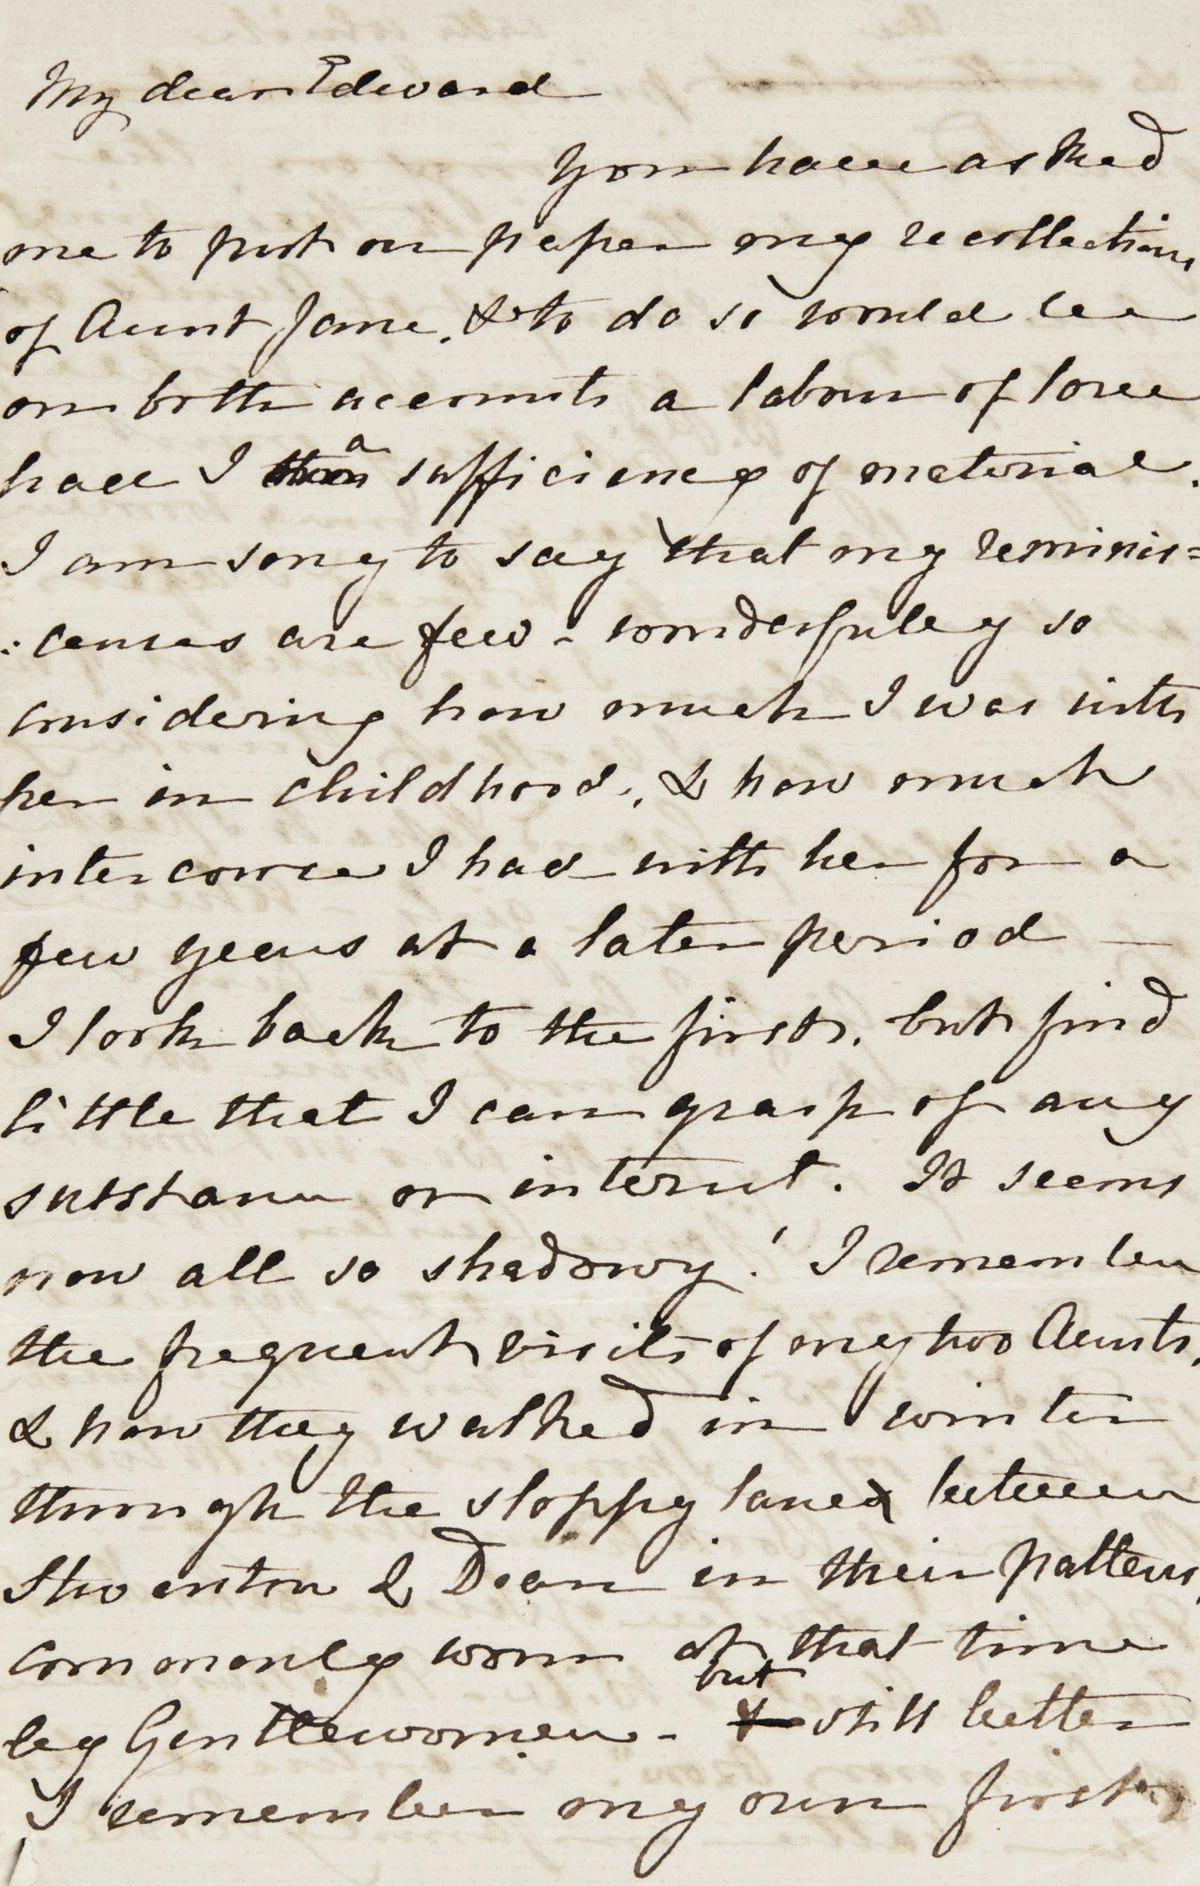 My dear Edward
You have asked
me to put on paper my recollections
of Aunt Jane, & to do so would be
on both accounts a labour of love
had I a sufficiency of material.
I am sorry to say that my reminis=
:cences are few - wonderfully so
considering how much I was with
her in childhood, & how much
intercourse I had with her for a
few years at a later period —
I look back to the first, but find
little that I can grasp of any
substance or interest. It seems
now all so shadowy! I remember
the frequent visits of my two Aunts,
& how they walked in winter
through the sloppy lane between
Steventon & Dean in their pattens,
commonly worn at that time
by Gentlewomen - but still better
I remember my own first